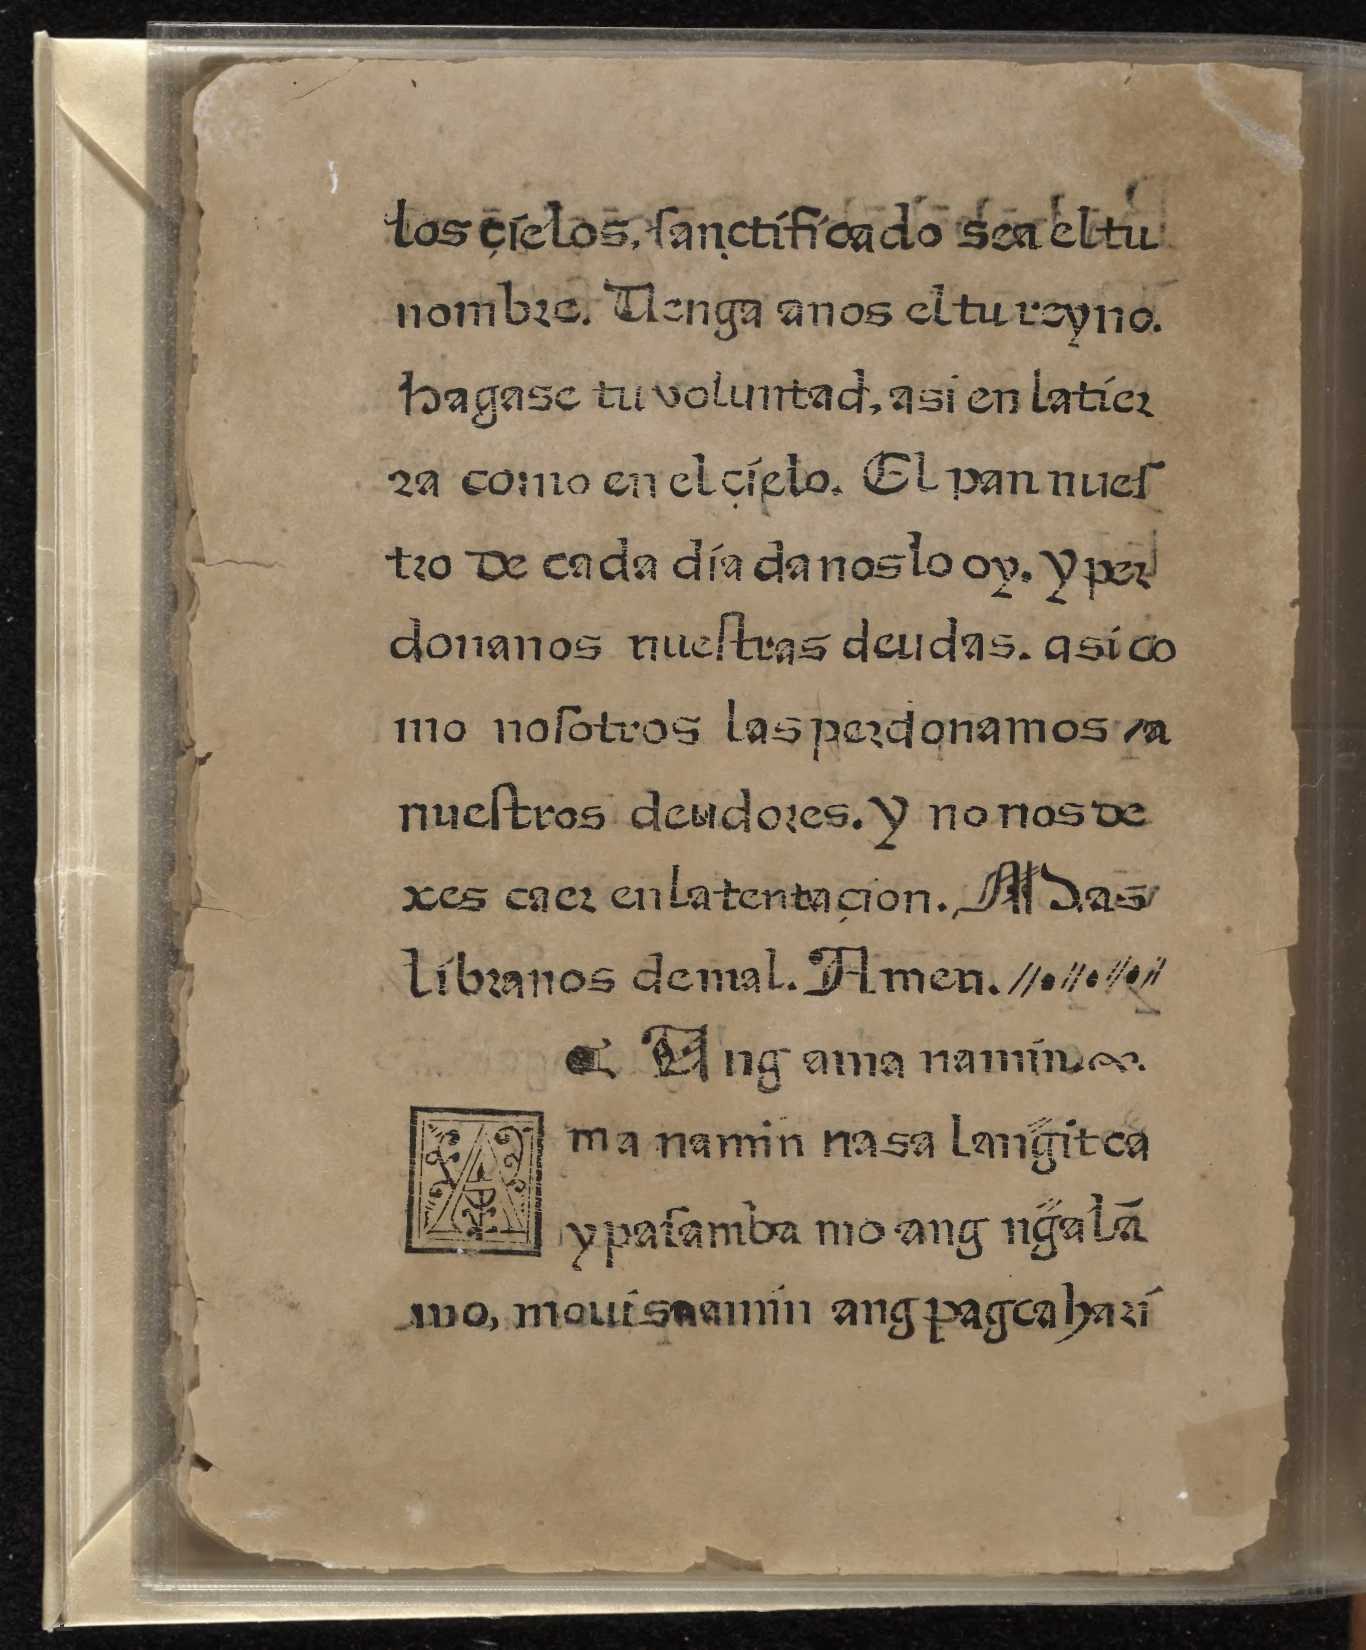 los çielos, ſanctificado sea el tu
nombre. Venga anos el tu reyno.
Hagase tu voluntad, asi en la tier
ra como en el çielo. El pan nueſ
tro de cada dia da nos lo oy. Y per
donanos nueſtras deudas. asi co
mo noſotros las perdonamos a
nueſtros deudores. Y no nos de
xes caer en la tentaçion. Mas
libranos de mal. Amen. //•//•//•//
Ang ama namin
Ama namin nasa lang̃it ca
ypaſamba mo ang ng̃alã
mo, moui sa amin ang pagcahari